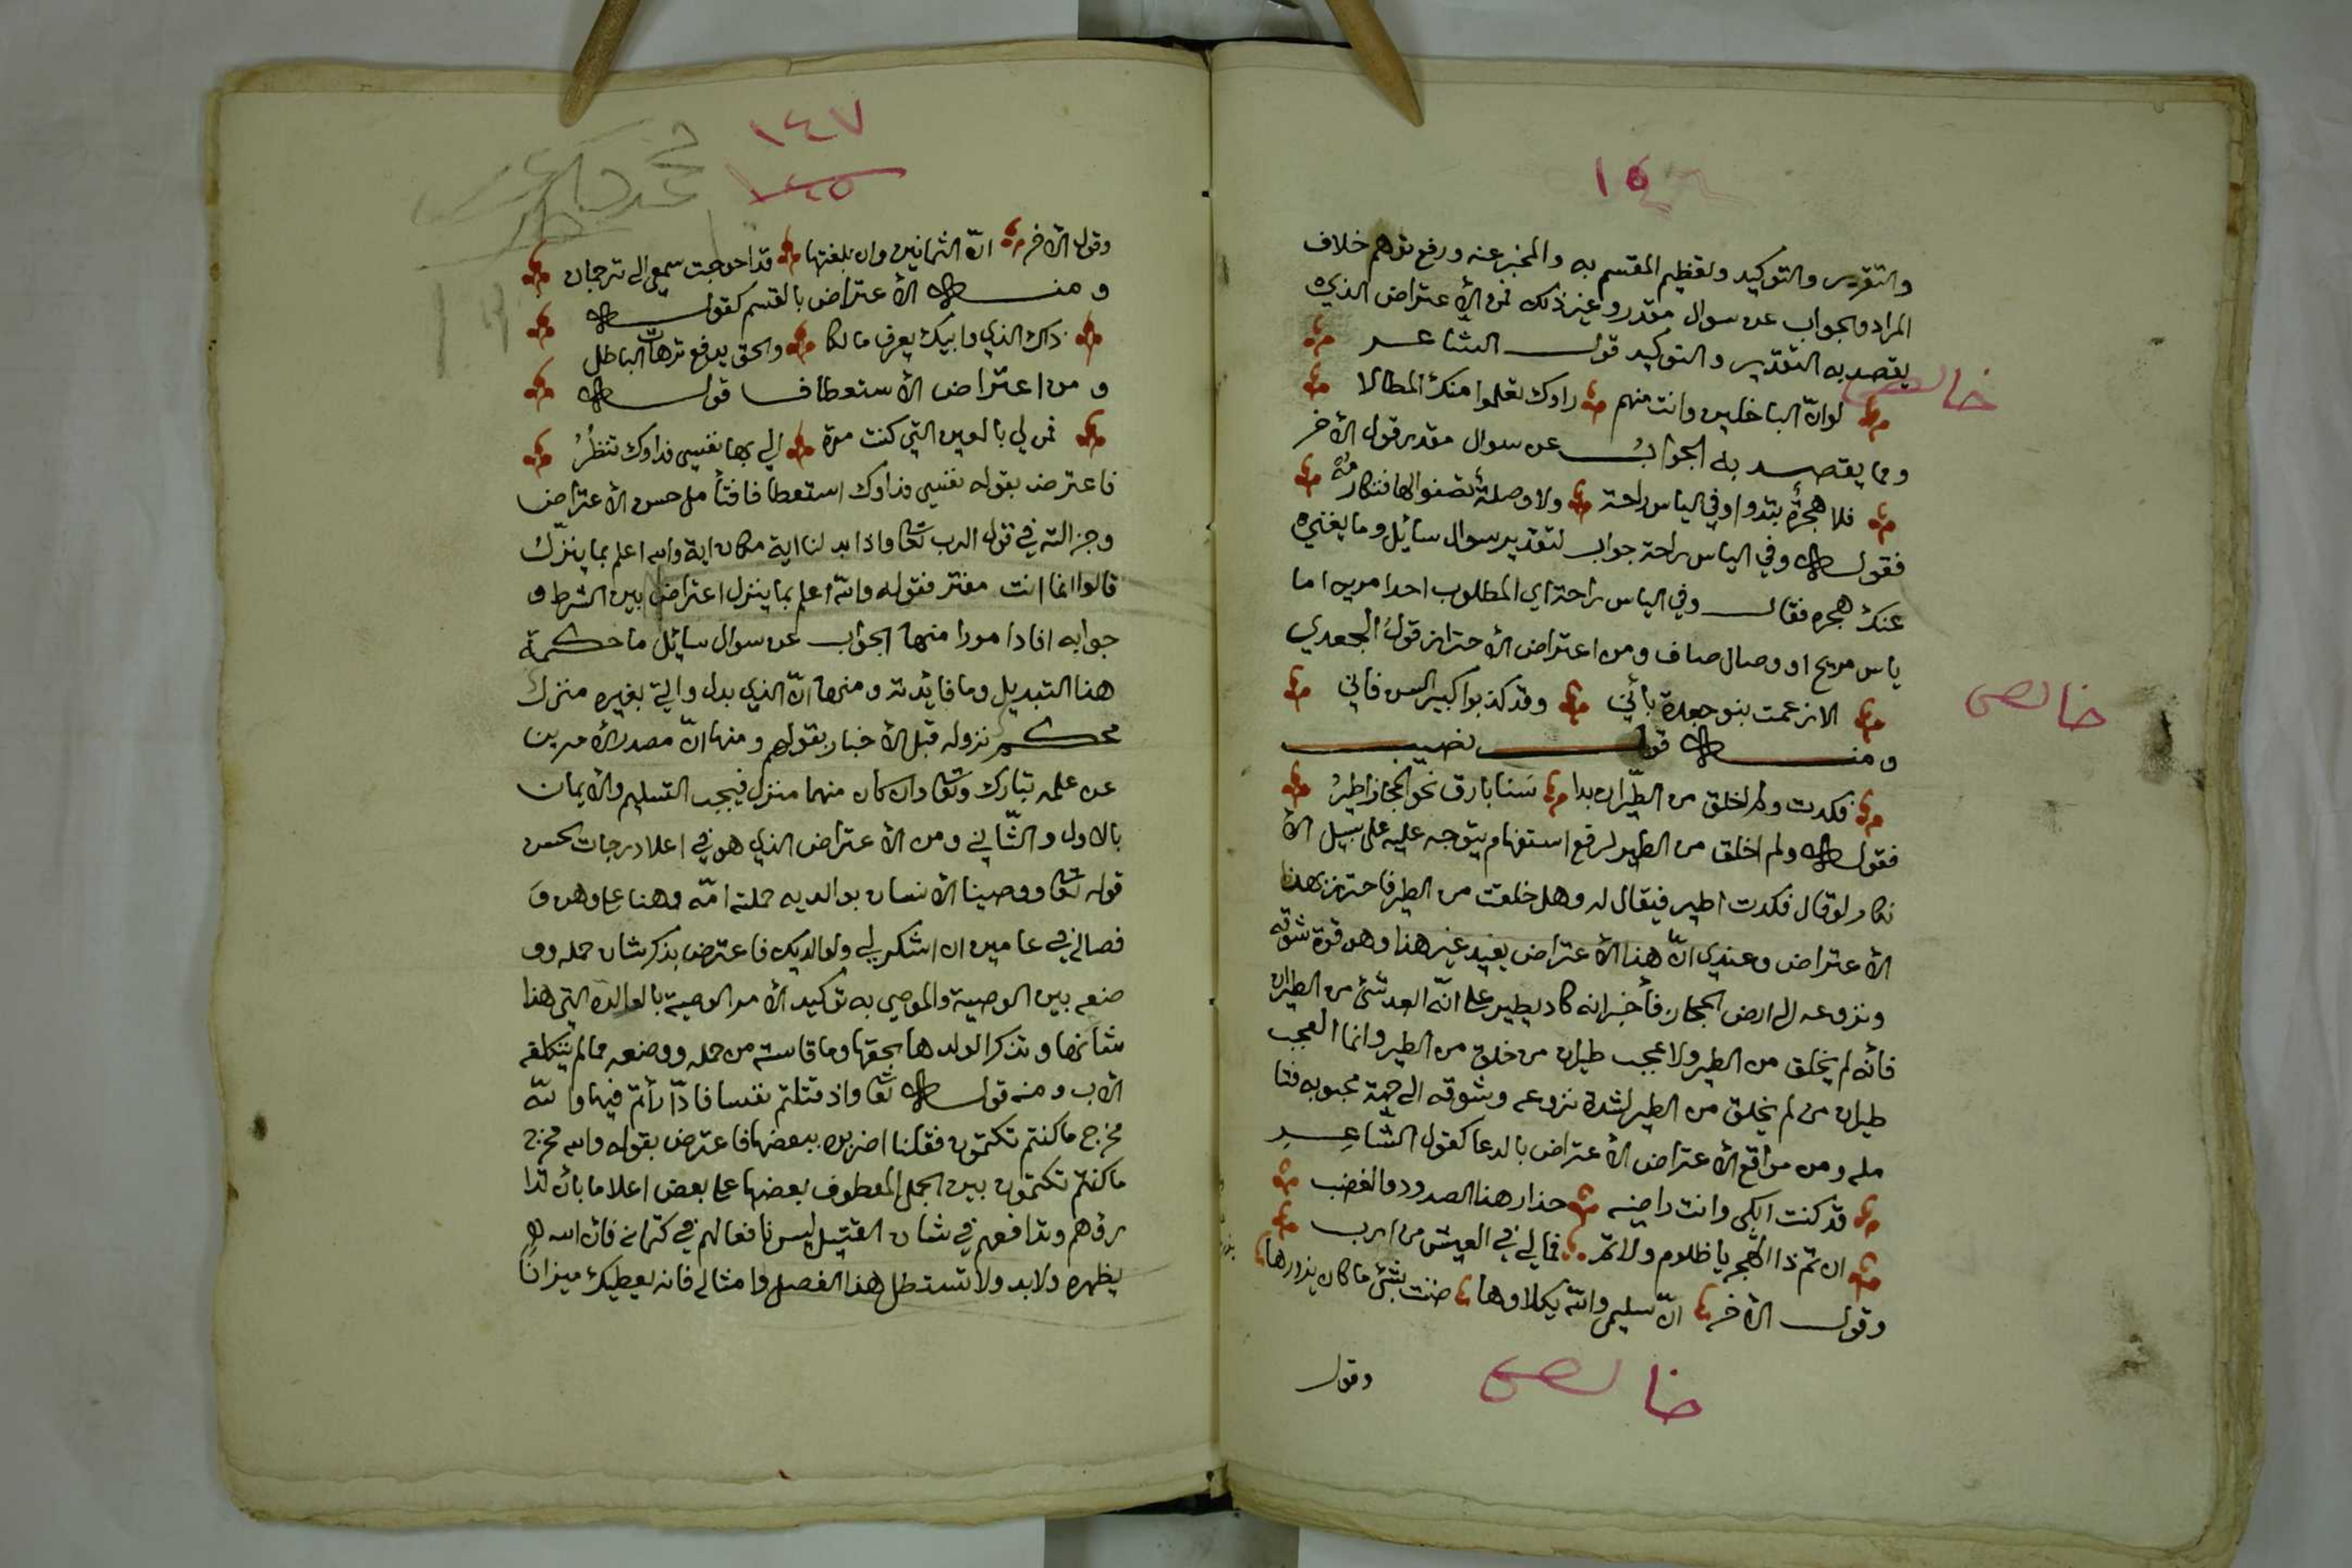 والتقرير والتوكيد وتعظيم المقسم به والمخبر عنه ورفع توهم خلاف
المراد والجواب عن سوال مقدر وغير ذلك فمن الأعتراض الذي
يقصد به التقرير والتوكيد قول الشاعر
لو انّ الباخلين وانت منهم راوك تعلموا منك المطالا
ومما يقصد به الجوابُ عن سوال مقدر قول الأخر
فلا هجرُهُ يبدوا وفي الياس راحة ولا وصلهُ يصفوا لنا فنكارمُه
فقوله وفي الياس راحة جواب لتقدير سوال سايل وما يغنيه
عنك هجره فقال وفي الياس راحة اي المطلوب احد امرين اما
ياس مريح او وصال صاف ومن اعتراض الأحتراز قول الجعدي
الا زعمت بنو جعدة بأني وقد كذبوا كبير السن فاني
ومنه قول نصيب
فكدت ولم اخلق من الطيران بدا سَنا بارق نحو الحجاز اطيرُ
فقوله ولم اخلق من الطير لرفع استفهام يتوجه عليه على سبيل الأ
نكار لو قال فكدت اطير فيقال له وهل خلقت من الطير فاحترز بهذا
الأعتراض وعندي انّ هذا الأعتراض يفيد غير هذا وهو قوة شوقه
ونزوعه الى ارض الحجاز فأخبر انه كاد يطير على انّه ابعد شئ من الطيران
فأنه لم يخلق من الطير ولا عجب طيران من خلق من الطير وانما العجب
طيران من لم يخلق من الطير لشدة نزوعه وشوقه الى جهة محبوبه فتا
مله ومن مواقع الأعتراض الأعتراض بالدعا كقول الشّاعِرِ
قد كنت ابكي وانت راضية حذار هذا الصدود والغضب
ان تم ذا الهجر يا ظلوم ولا تمّ فما لي في العيش من ارب
وقول الأخر انّ سليمى واللّه يكلاوها ضنت بشئ ما كان يزورها
وقول
خالص
خالص
خالص
١٤٧
١٤٥
وقول الأخر انّ الثمانين وان بلغتها قد احوجت سمعي الى ترجمان
ومنه الأعتراض بالقسم كقوله
ذاك الذي وابيك يعرف مالكا والحق يدفع ترهات الباطل
ومن اعتراض الأستعطاف قوله
فمن لي بالعين التي كنت مرة الي بها نفسي فداوك تنظُرُ
فاعترض بقوله نفسي فداوك استعطافا فتأمل حسن الأعتراض
وجزالته في قول الرب تعا واذا بدلنا اية مكان اية والله اعلم بما ينزل
قالوا انما انت مفتر فقوله واللّه اعلم بما ينزل اعتراض بين الشرط و
جوابه افاد امورا منها الجواب عن سوال سايل ما حكمة
هذا التبديل وما فايدته ومنها انّ الذي بدل واتي بغيره منزل
محكم نزوله قبل الأخبار بقولهم ومنها انّ مصدر الأمرين
عن علمه تبارك وتعا وان كان منهما منزل فيجب التسليم والأيمان
بالاول والثّاني ومن الأعتراض الذي هو في اعلا درجات الحسن
قوله تعا ووصينا الأنسان بوالديه حملته امّه وهنا على وهن و
فصاله في عامين ان اشكر لي ولوالديك فاعترض بذكر شان حمله وو
ضعه بين الوصية والموصي به توكيد الأمر الوصية بالوالدة التي هذا
شانها وتذكر الولد ها بحقها وما قاسته من حمله ووضعه مما لم يتكلفه
الأب ومنه قوله تعا واذ قتلتم نفسا فادّارأتم فيها واللّه
مخرج ما كنتم تكتمون فقلنا اضربوه ببعضها فاعترض بقوله والله مخرج
ما كنتم تكتمون بين الجمل المعطوف بعضها على بعض اعلاما بأن تدا
رؤهم وتدافعهم في شان القتيل ليس نافعا لهم في كتمانه فان الله
يظهره ولا بد ولا تستطل هذا الفصل وامثاله فانه يعطيك ميزانًا